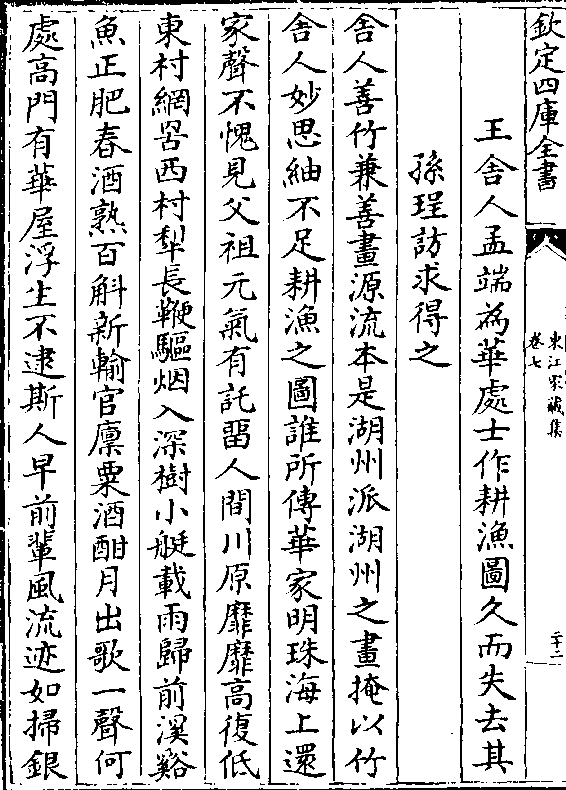 欽定四庫全書
東江家藏集
卷七
二十二
王舍人孟端為華處士作耕漁圖久而失去其
孫珵訪求得之
舍人善竹兼善畫源流本是湖州派湖州之畫掩以竹
舍人妙思紬不足耕漁之圖誰所傳華家明珠海上還
家聲不愧見父祖元氣有託畱人間川原靡靡高復低
東村網罟西村犁長鞭驅烟入深樹小艇載雨歸前溪谿
魚正肥春酒熟百斛新輸官廪粟酒酣月出歌一聲何
處高門有華屋浮生不逮斯人早前輩風流迹如掃銀